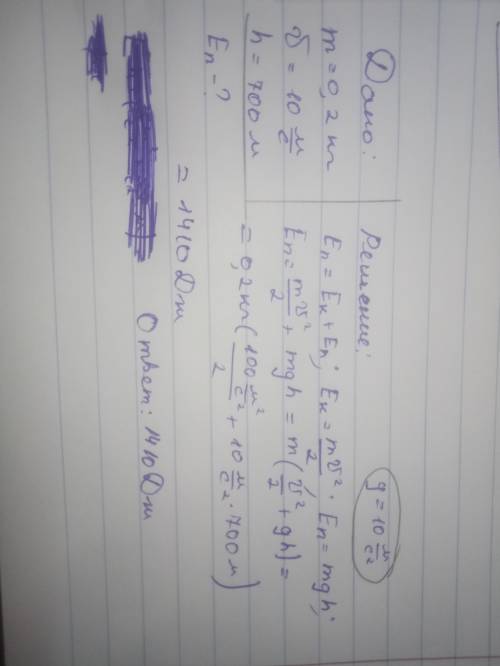 Дано:
m = 0,2 кг
v = 10 м/с
h = 700 м
Eп - ?
Решение:
g = 10 м/с²
Eп = Eк + Eп; Eк = mv²/2; Eп = mgh;
Eп = mv²/2 + mgh = m(v²/2 + gh) =
= 0,2 кг (100 м²/с² / 2 + 10 м/с² · 700 м)
= 1410 Дж
Ответ: 1410 Дж